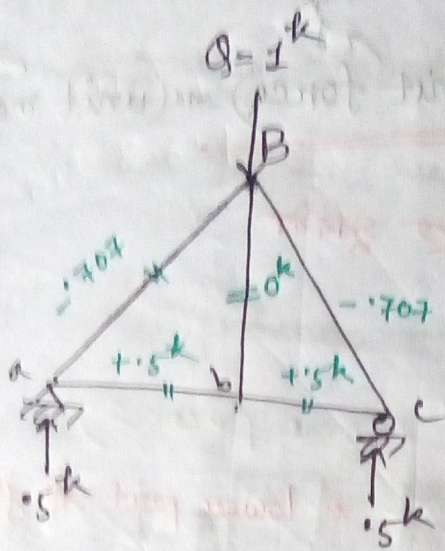 Q = 1k
B
-.707
0k
-.707
a
+.5k
b
+.5k
c
.5k
.5k